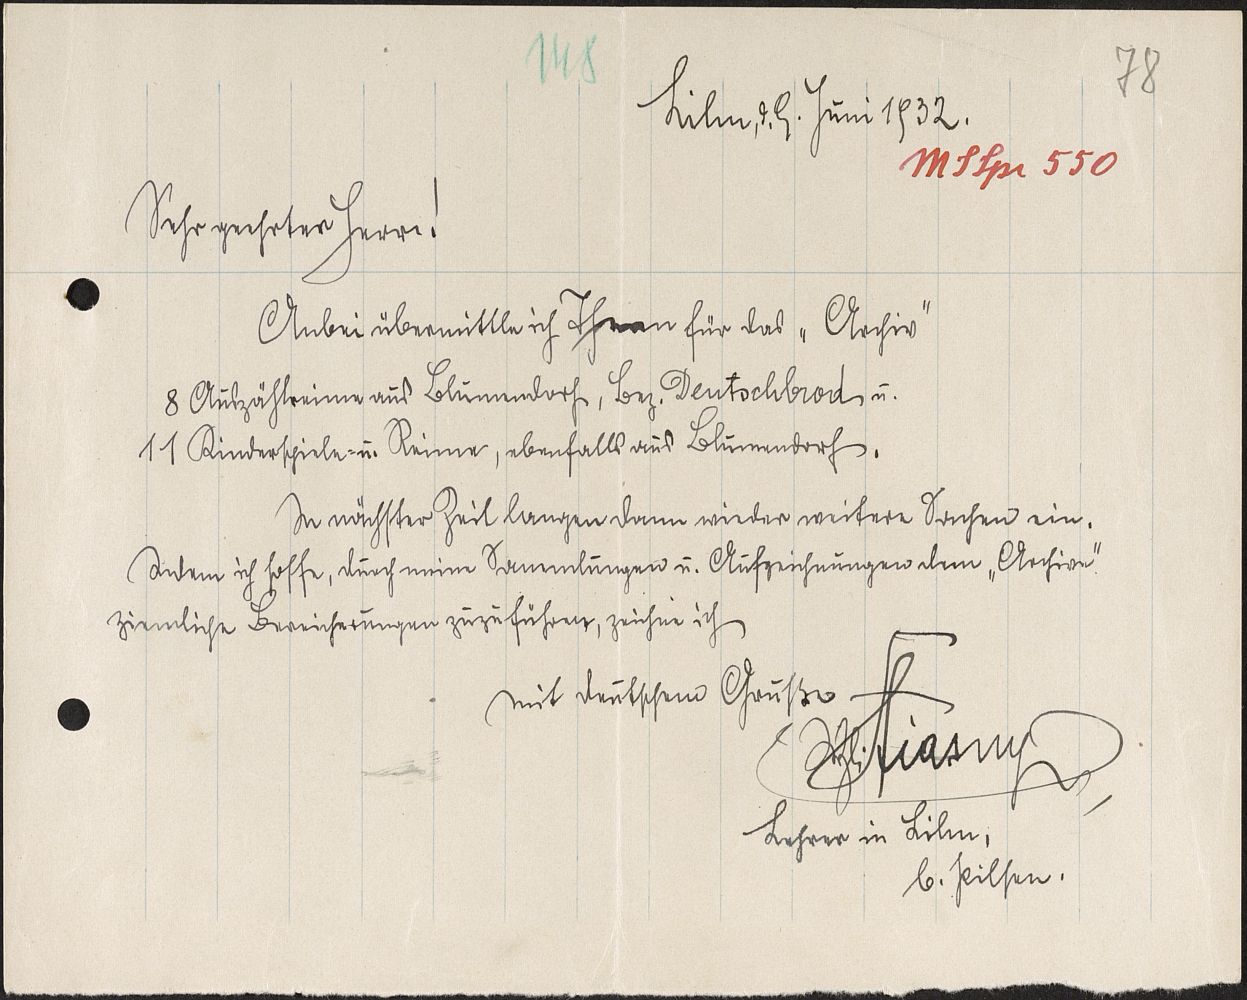 148
78
Lihn, d. 9. Juni 1932.
MSSpr 550
Sehr geehrter Herr!
Anbei übermittle ich Ihnen für das „Archiv"
8 Auszählreime aus Blumendorf, Bez. Deutschbrod u.
11 Kinderspiele- u. Reime, ebenfalls aus Blumendorf.
In nächster Zeit langen dann wieder weitere Sachen ein.
Indem ich hoffe, durch meine Sammlungen u. Aufzeichnungen dem „Archive"
ziemliche Bereicherungen zuzuführen, zeichne ich
mit deutschem Gruße
Tiasny
Lehrer in Lihn,
b. Pilsen.